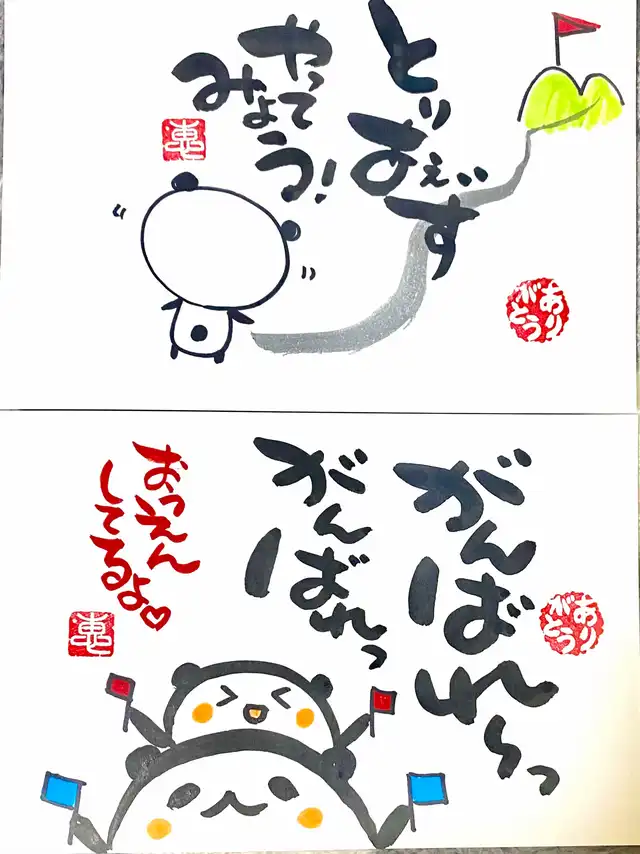 とりあえず
やって
みよう!
恵
ありがとう
がんばれ〜っ
がんばれっ
おうえん
してるよ♡
恵
ありがとう